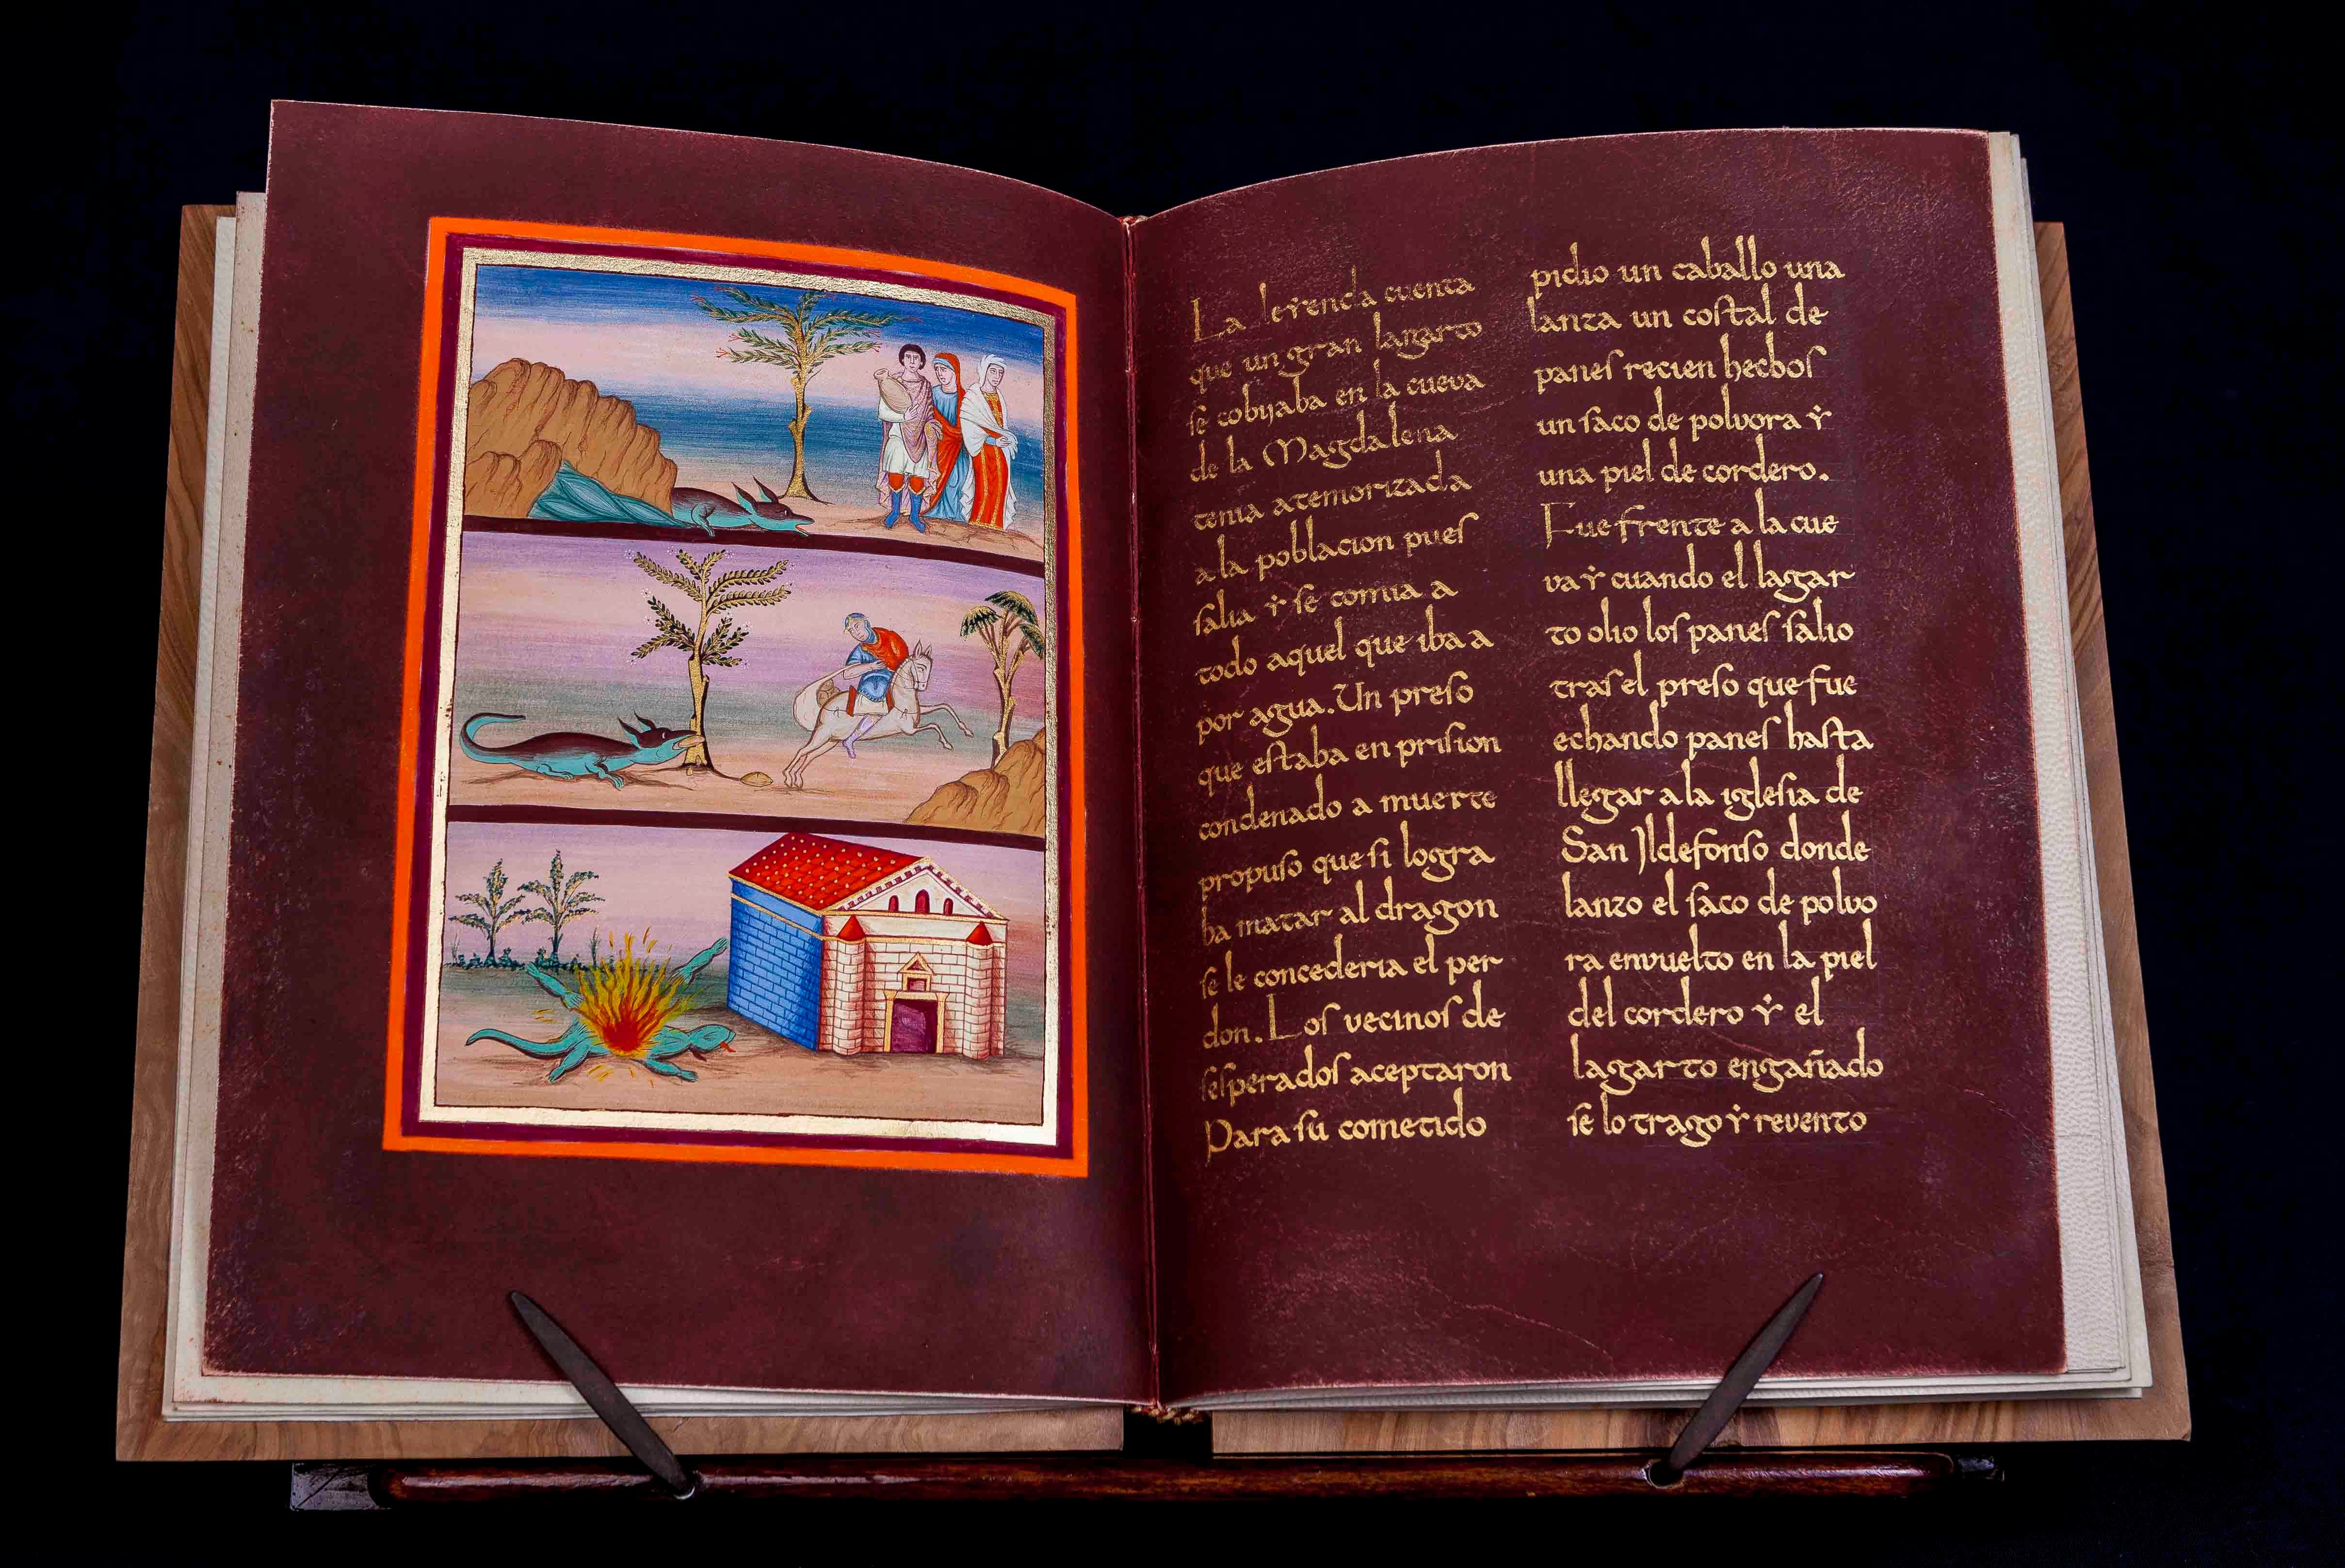 La leyenda cuenta
que un gran lagarto
se cobijaba en la cueva
de la Magdalena
tenia atemorizada
a la poblacion pues
salia y se comia a
todo aquel que iba a
por agua. Un preso
que estaba en prision
condenado a muerte
propuso que si logra
ba matar al dragon
se le concederia el per
don. Los vecinos de
sesperados aceptaron
Para su cometido
pidio un caballo una
lanza un costal de
panes recien hechos
un saco de polvora y
una piel de cordero.
Fue frente a la cue
va y cuando el lagar
to olio los panes salio
tras el preso que fue
echando panes hasta
llegar a la iglesia de
San Ildefonso donde
lanzo el saco de polvo
ra envuelto en la piel
del cordero y el
lagarto engañado
se lo trago y revento